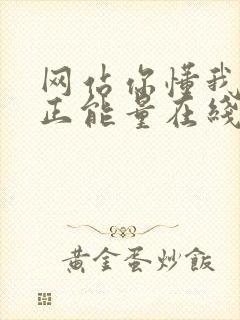 网站你懂我
正能量在线
黄金蛋炒飯